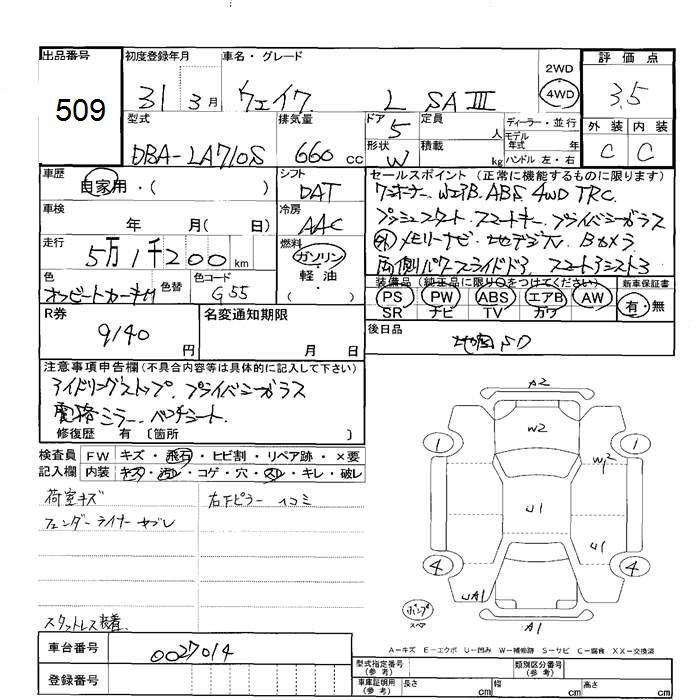 出品番号 初度登録年月 車名・グレード 2WD 評価点
509 31 3月 ウェイク L SAⅢ 4WD 3.5
型式 排気量 ドア 5 定員 人 ディーラー・並行 外装 内装
モデル年式 年
DBA-LA710S 660 cc 形状 W 積載 kg ハンドル 左・右 C C
車歴 シフト セールスポイント (正常に機能するものに限ります)
自家用・( ) DAT ワンオーナー. WエアB. ABS. 4WD TRC.
車検 冷房 プッシュスタート. スマートキー. プライバシーガラス
年 月( 日) AAC 外 メモリーナビ. 地デジTV. Bカメラ
走行 燃料 両側パワースライドドア. スマートアシスト3
5万1千200km ガソリン 装備品 (純正品に限り○をつけてください) 新車保証書
色 色替 色コード 軽油 PS PW ABS エアB AW 有・無
G55 ・( ) SR ナビ TV カワ
R券 名変通知期限 後日品
9140円 月 日 地図SD
注意事項申告欄 (不具合内容等は具体的に記入して下さい)
アイドリングストップ. プライバシーガラス
電格ミラー. ベンチシート.
修復歴 有 〔箇所 〕
検査員 FW キズ・飛石・ヒビ割・リペア跡・×要
記入欄 内装 キズ・汚レ・コゲ・穴・スレ・キレ・破レ
荷室キズ 右下ピラー凹コミ
フェンダーライナーヤブレ
スタットレス装着.
A2
W2
1 1
W2
U1
U1
4 4
UA1
A1
パンプ
スペア
A-キズ E-エクボ U-凹み W-補修跡 S-サビ C-腐食 XX-交換済
車台番号 0027014
登録番号
型式指定番号(参考) 類別区分番号(参考)
車庫証明用(参考) 長さ cm 幅 cm 高さ cm